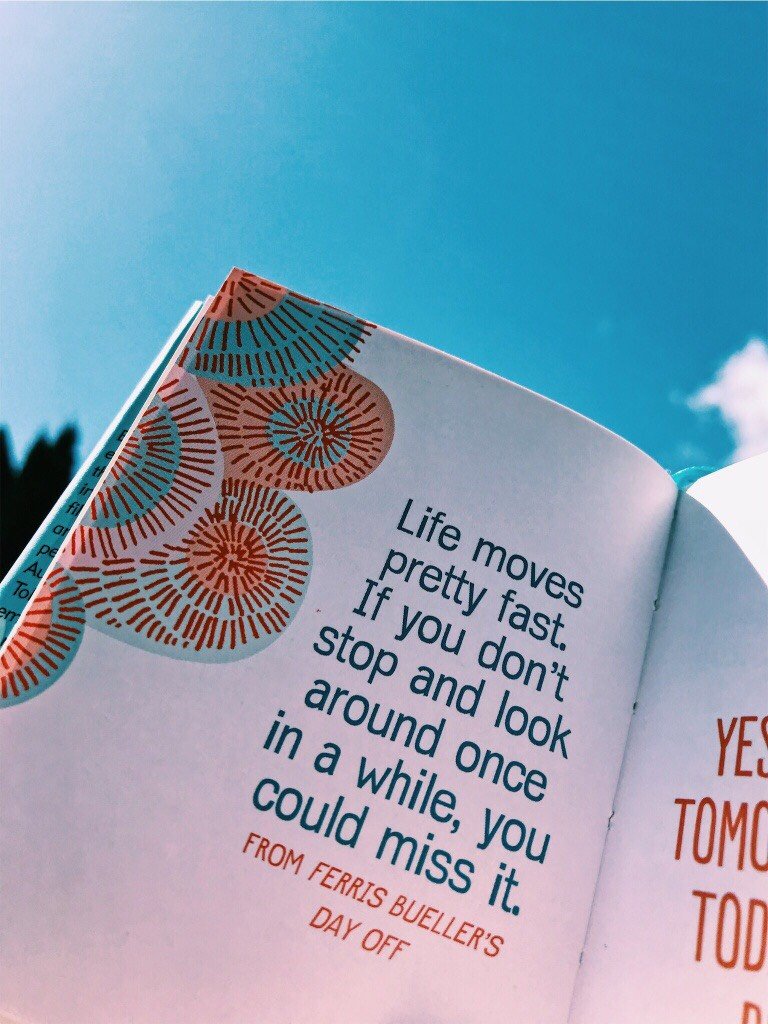 Life moves
pretty fast.
If you don't
stop and look
around once
in a while, you
could miss it.
FROM FERRIS BUELLER'S
DAY OFF